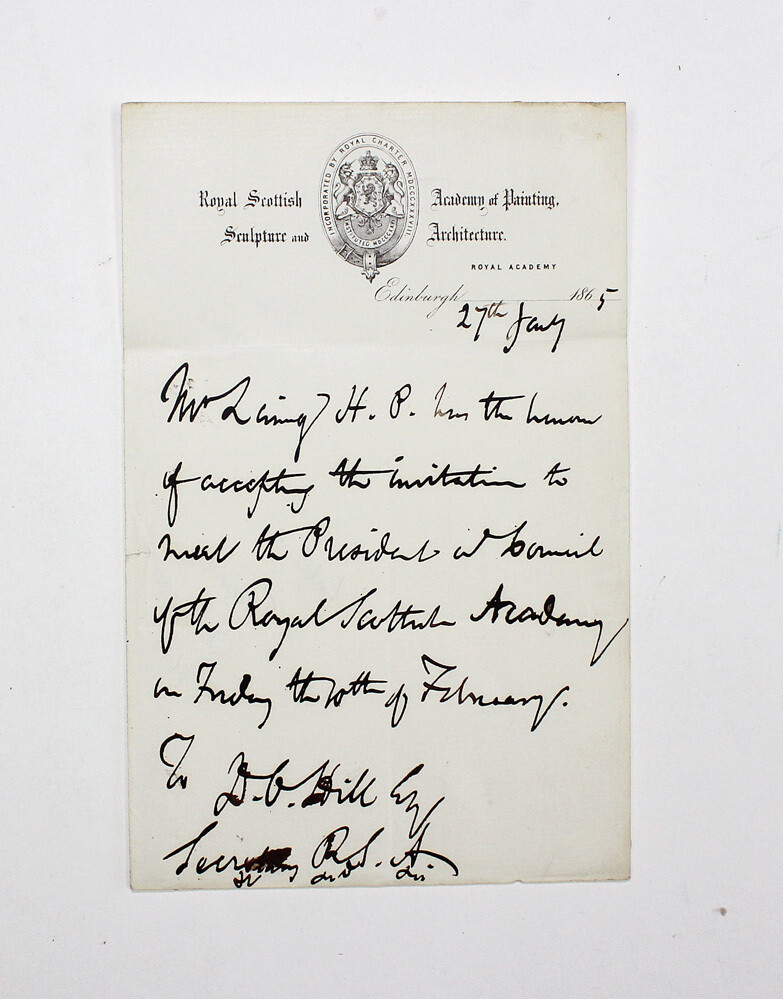 INCORPORATED BY ROYAL CHARTER MDCCCXXXVIII
Royal Scottish Academy of Painting,
Sculpture and Architecture.
ROYAL ACADMEY
Edinburgh 1865
27th Jany
Mr Laing H. P. has the honor
of accepting the invitation to
meet the President and Council
of the Royal Scottish Academy
on Friday the 10th of February.
To D. O. Hill Esq
Secretary R. S. A.